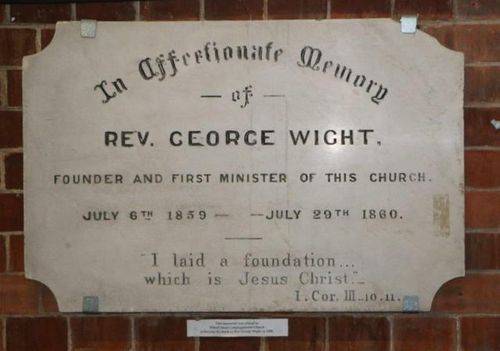 In Affectionate Memory
— of —
REV. GEORGE WIGHT,
FOUNDER AND FIRST MINISTER OF THIS CHURCH.
JULY 6TH 1859 — — JULY 29TH 1860.
"I laid a foundation...
which is Jesus Christ."
I. Cor. III_10.11.